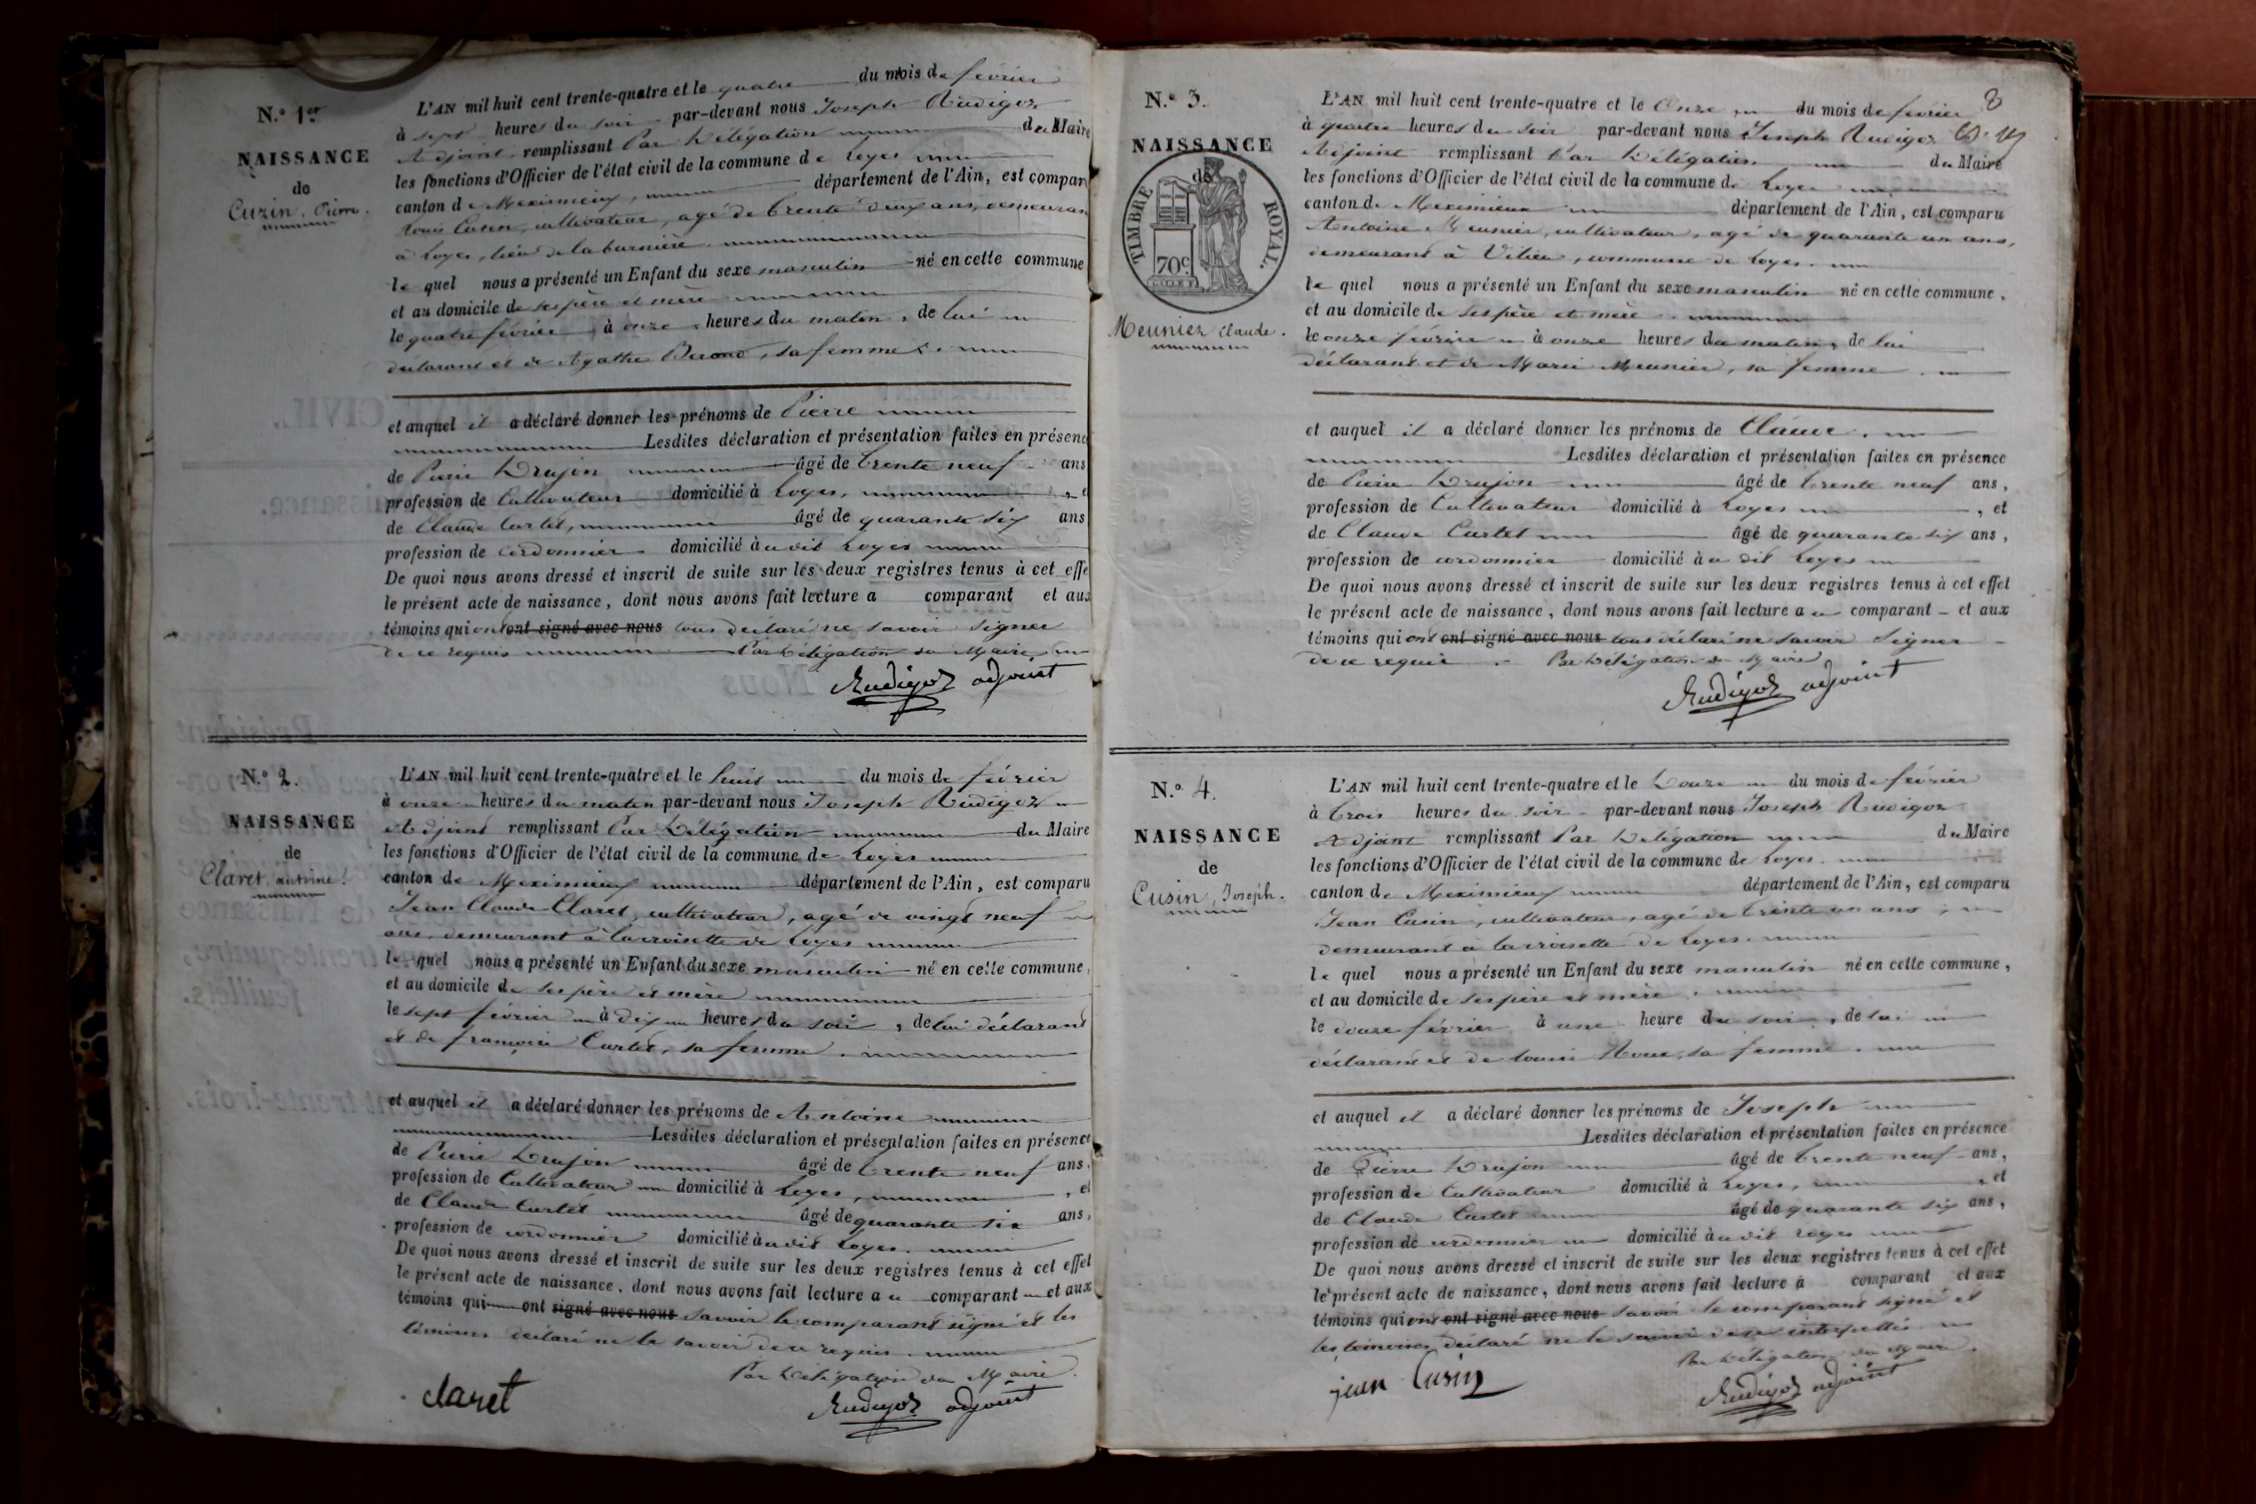 N.o 1er
NAISSANCE
de
Cuzin, Pierre.
L'AN mil huit cent trente-quatre et le quatre du mois de février
à sept heures du soir par-devant nous Joseph Rudigoz
Adjoint remplissant Par Délégation du Maire
les fonctions d'Officier de l'état civil de la commune de Loyes
canton de Meximieux, département de l'Ain, est compar
Louis Cusin, cultivateur, agé de trente deux ans, demeurant
à Loyes, lieu de la
le quel nous a présenté un Enfant du sexe masculin né en cette commune
et au domicile de ses père et mère
le quatre février à onze heures du matin, de lui
déclarant et de Agathe sa femme.
et auquel il a déclaré donner les prénoms de Pierre
Lesdites déclaration et présentation faites en présenc
de Pierre Drujon âgé de trente neuf ans
profession de Cultivateur domicilié à Loyes, e
de Claude Curtet, âgé de quarante six ans
profession de cordonnier domicilié à u dit Loyes
De quoi nous avons dressé et inscrit de suite sur les deux registres tenus à cet effe
le présent acte de naissance, dont nous avons fait lecture a comparant et aux
témoins qui ont ont signé avec nous tous déclaré ne savoir signer
de ce requis Par Délégation du Maire
Rudigoz adjoint
N.o 2.
NAISSANCE
de
Claret, antoine.
L'AN mil huit cent trente-quatre et le huit du mois de février
à onze heures du matin par-devant nous Joseph Rudigoz
Adjoint remplissant Par Délégation du Maire
les fonctions d'Officier de l'état civil de la commune de Loyes
canton de Meximieux département de l'Ain, est comparu
Jean Claude Claret, cultivateur, agé de vingt neuf
ans, demeurant à la croisette de Loyes
le quel nous a présenté un Enfant du sexe masculin né en cette commune,
et au domicile de ses père et mère
le sept février à dix heures du soir, de lui déclarant
et de françoise Curtet, sa femme.
et auquel il a déclaré donner les prénoms de Antoine
Lesdites déclaration et présentation faites en présence
de Pierre Drujon âgé de trente neuf ans,
profession de Cultivateur domicilié à Loyes, et
de Claude Curtet âgé de quarante six ans,
profession de cordonnier domicilié à u dit Loyes.
De quoi nous avons dressé et inscrit de suite sur les deux registres tenus à cet effet
le présent acte de naissance, dont nous avons fait lecture a u comparant et aux
témoins qui ont signé avec nous savoir le comparant signé et les
témoins déclaré ne le savoir de ce requis.
Par Délégation du Maire.
claret Rudigoz adjoint
8
N.o 3.
NAISSANCE
de
TIMBRE ROYAL.
70c.
Meunier, claude.
L'AN mil huit cent trente-quatre et le Onze du mois de février
à quatre heures du soir par-devant nous Joseph Rudigoz
Adjoint remplissant Par Délégation du Maire
les fonctions d'Officier de l'état civil de la commune de Loyes
canton de Meximieux département de l'Ain, est comparu
Antoine Meunier, cultivateur, agé de quarante un ans,
demeurant à Vilieu, commune de Loyes.
le quel nous a présenté un Enfant du sexe masculin né en cette commune,
et au domicile de ses père et mère.
le onze février à onze heures du matin, de lui
déclarant et de Marie Meunier, sa femme.
et auquel il a déclaré donner les prénoms de Claude.
Lesdites déclaration et présentation faites en présence
de Pierre Drujon âgé de trente neuf ans,
profession de Cultivateur domicilié à Loyes, et
de Claude Curtet âgé de quarante six ans,
profession de cordonnier domicilié à u dit Loyes
De quoi nous avons dressé et inscrit de suite sur les deux registres tenus à cet effet
le présent acte de naissance, dont nous avons fait lecture a u comparant et aux
témoins qui ont ont signé avec nous tous déclaré ne savoir signer
de ce requis. Par Délégation du Maire
Rudigoz adjoint
N.o 4.
NAISSANCE
de
Cusin, Joseph.
L'AN mil huit cent trente-quatre et le Douze du mois de février
à trois heures du soir par-devant nous Joseph Rudigoz
Adjoint remplissant Par Délégation du Maire
les fonctions d'Officier de l'état civil de la commune de Loyes.
canton de Meximieux département de l'Ain, est comparu
Jean Cusin, cultivateur, agé de trente un ans,
demeurant à la croisette de Loyes.
le quel nous a présenté un Enfant du sexe masculin né en cette commune,
et au domicile de ses père et mère.
le douze février à une heure du soir, de lui
déclarant et de Louise sa femme.
et auquel il a déclaré donner les prénoms de Joseph
Lesdites déclaration et présentation faites en présence
de Pierre Drujon âgé de trente neuf ans,
profession de Cultivateur domicilié à Loyes, et
de Claude Curtet âgé de quarante six ans,
profession de cordonnier domicilié à u dit Loyes
De quoi nous avons dressé et inscrit de suite sur les deux registres tenus à cet effet
le présent acte de naissance, dont nous avons fait lecture à comparant et aux
témoins qui ont ont signé avec nous savoir le comparant signé et
les témoins déclaré ne le savoir de ce interpellés.
Par Délégation du Maire.
jean Cusin Rudigoz adjoint